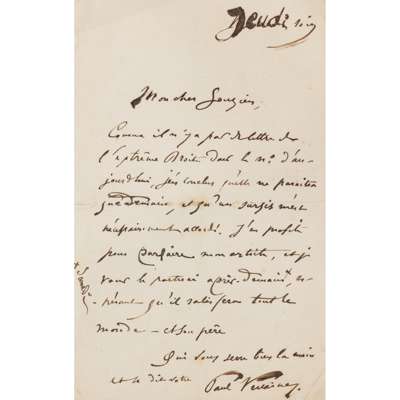 Jeudi soir
Mon cher
Comme il n'y a pas de lettre de
l'Extrême Droite dans le n° d'au-
jourd'hui, j'en conclus qu'elle ne paraîtra
que Demain, et qu'un sursis m'est
nécessairement accordé. J'en profite
pour parfaire mon article, et je
vous le porterai après-demain x, es-
pérant qu'il satisfera tout le
monde – et son père
x Samedi
Qui vous serre bien la main
et se dit votre
Paul